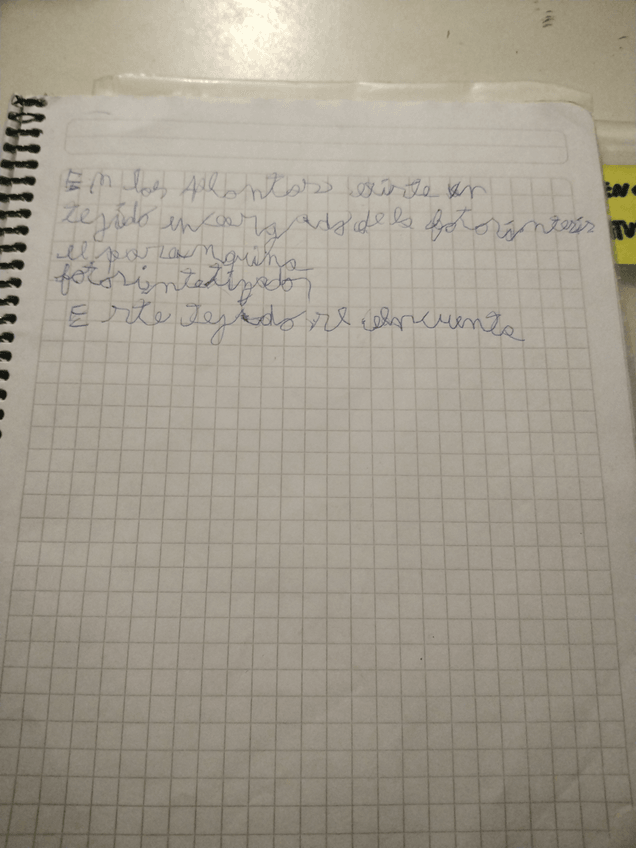 En las plantas existe un
tejido encargado de la fotosíntesis
el paranquima
fotosintetizador
Este tejido se encuenta
EN